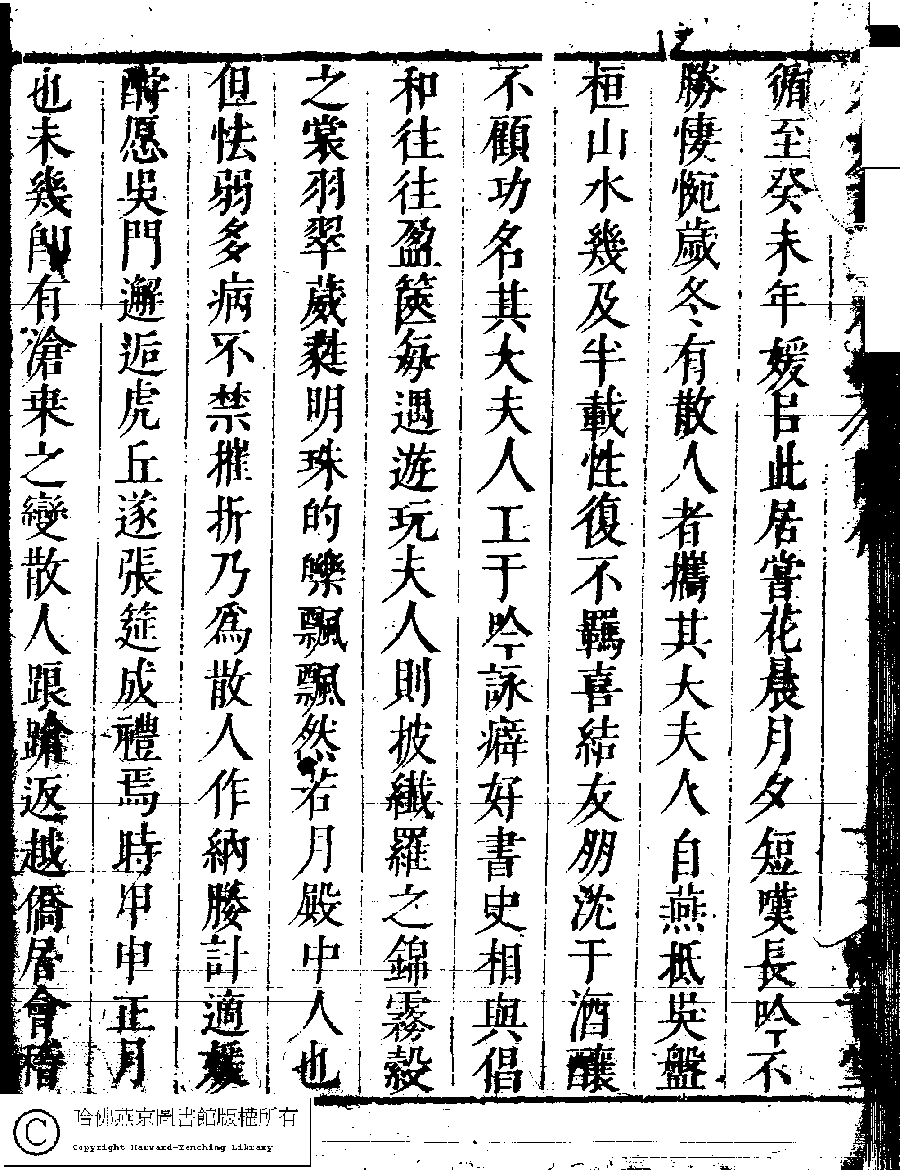 循至癸未年媛呂此居嘗花晨月夕短嘆長吟不
勝悽惋歲冬有散人者攜其大夫人自燕抵吳盤
桓山水幾及半載性復不羈喜結友朋沈于酒釀
不顧功名其大夫人工于吟詠癖好書史相與倡
和往往盈篋每遇遊玩夫人則披纖羅之錦霧縠
之裳羽翠葳蕤明珠的皪飄飄然若月殿中人也
但怯弱多病不禁摧折乃爲散人作納媵計適媛
酧愿吳門邂逅虎丘遂張筵成禮焉時甲申正月
也未幾卽有滄桑之變散人踉蹌返越僑居會稽
哈佛燕京圖書館版權所有
Copyright Harvard-Yenching Library